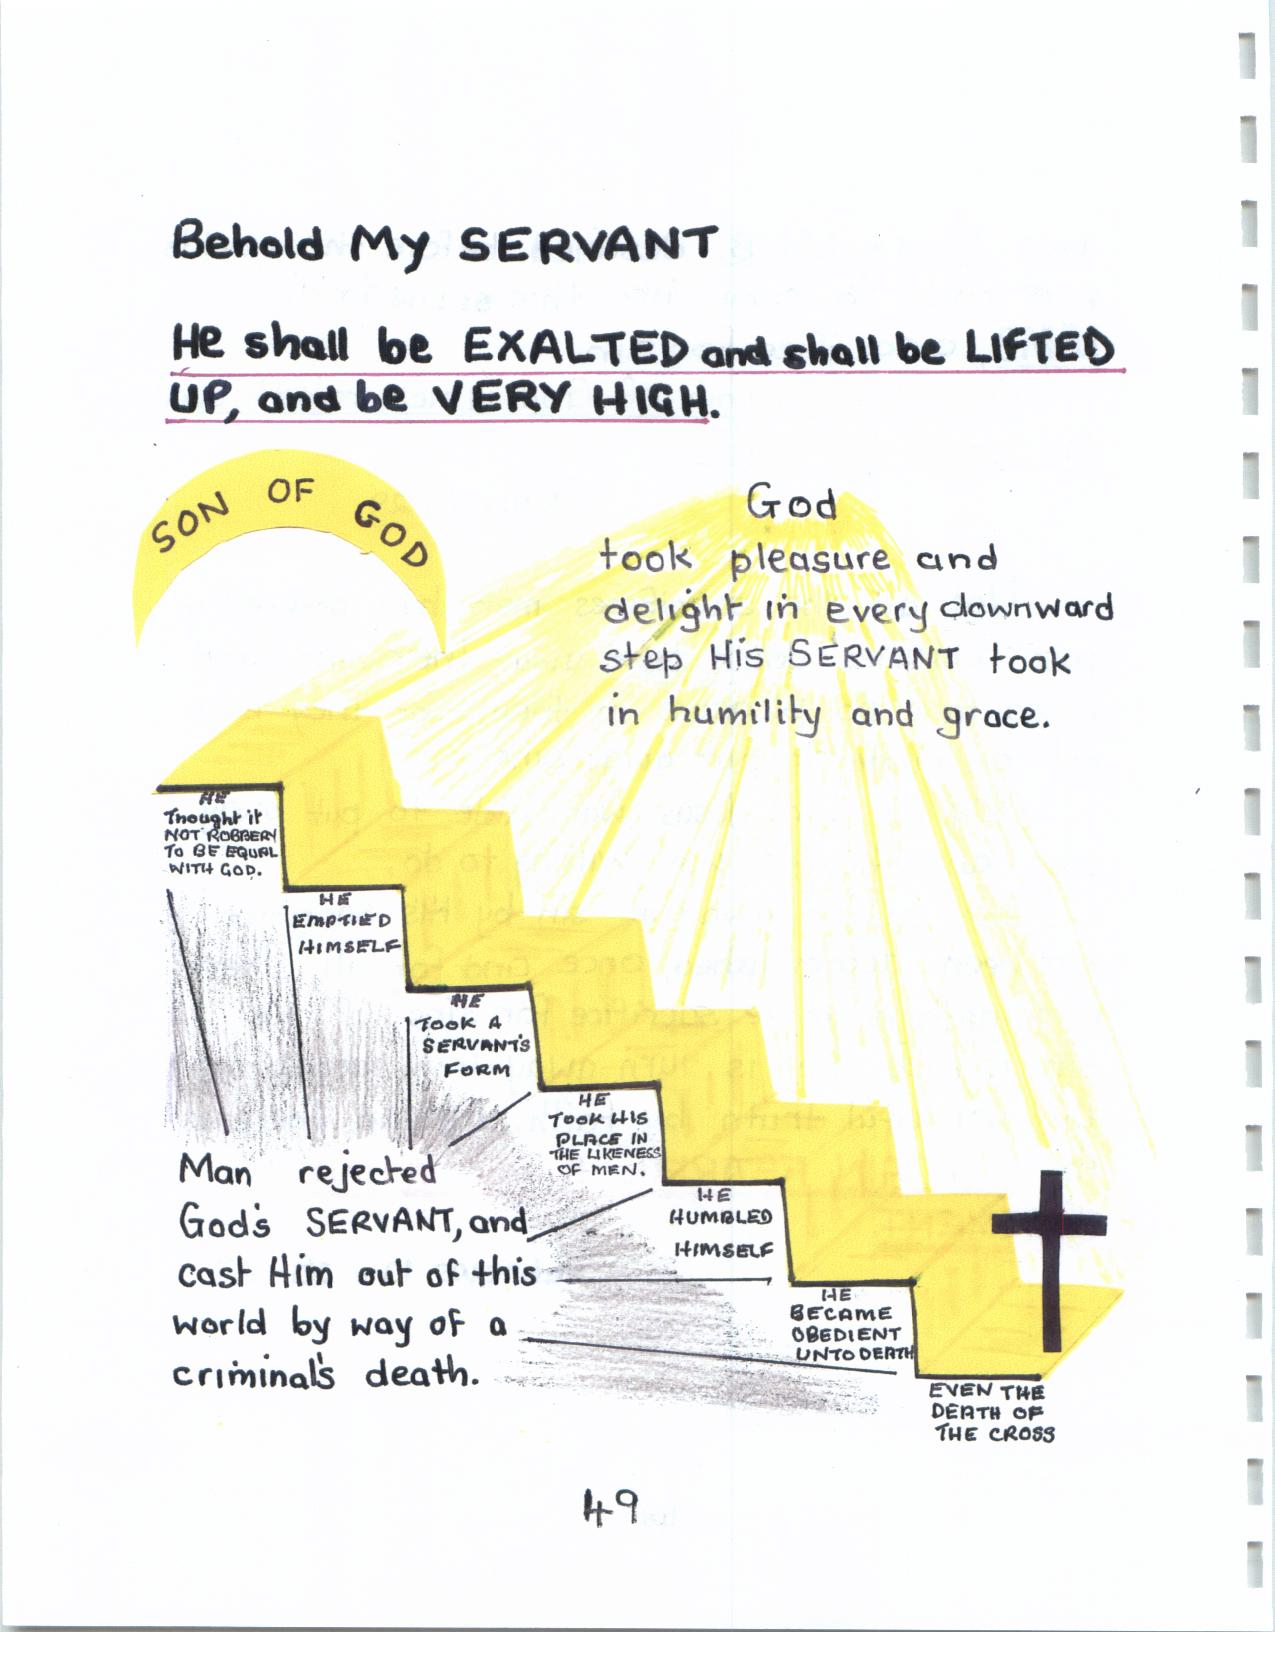 Behold My SERVANT
He shall be EXALTED and shall be LIFTED
UP, and be VERY HIGH.
SON OF GOD
God
took pleasure and
delight in every downward
step His SERVANT took
in humility and grace.
HE
Thought it
NOT ROBBERY
TO BE EQUAL
WITH GOD.
HE
EMPTIED
HIMSELF
HE
TOOK A
SERVANT'S
FORM
HE
TOOK HIS
PLACE IN
THE LIKENESS
OF MEN.
HE
HUMBLED
HIMSELF
HE
BECAME
OBEDIENT
UNTO DEATH
EVEN THE
DEATH OF
THE CROSS
Man rejected
God's SERVANT, and
cast Him out of this
world by way of a
criminal's death.
49